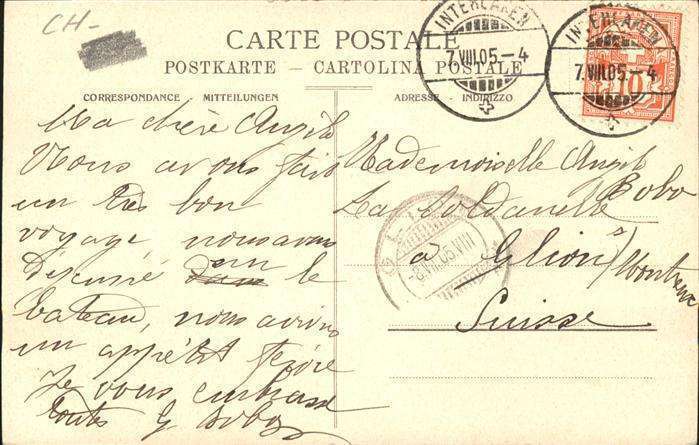 CH-
CARTE POSTALE
POSTKARTE - CARTOLINA POSTALE
CORRESPONDANCE MITTEILUNGEN
ADRESSE - INDIRIZZO
INTERLAKEN
7.VIII.05-4
INTERLAKEN
7.VIII.05-4
10
Ma chère
Nous avons fait
un très bon
voyage, nous avons
le
bateau, nous avions
un appétit
Je vous embrasse
toutes Bobo
Mademoiselle
Bobo
La Soldanelle
à Glion s/
Suisse
-8.VIII.05.VIII